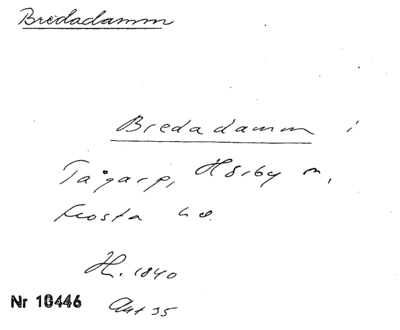 Bredadamm
Bredadamm i
Tågarp, Hörby sn,
Frosta hd.
H. 1840
Akt 35
Nr 10446